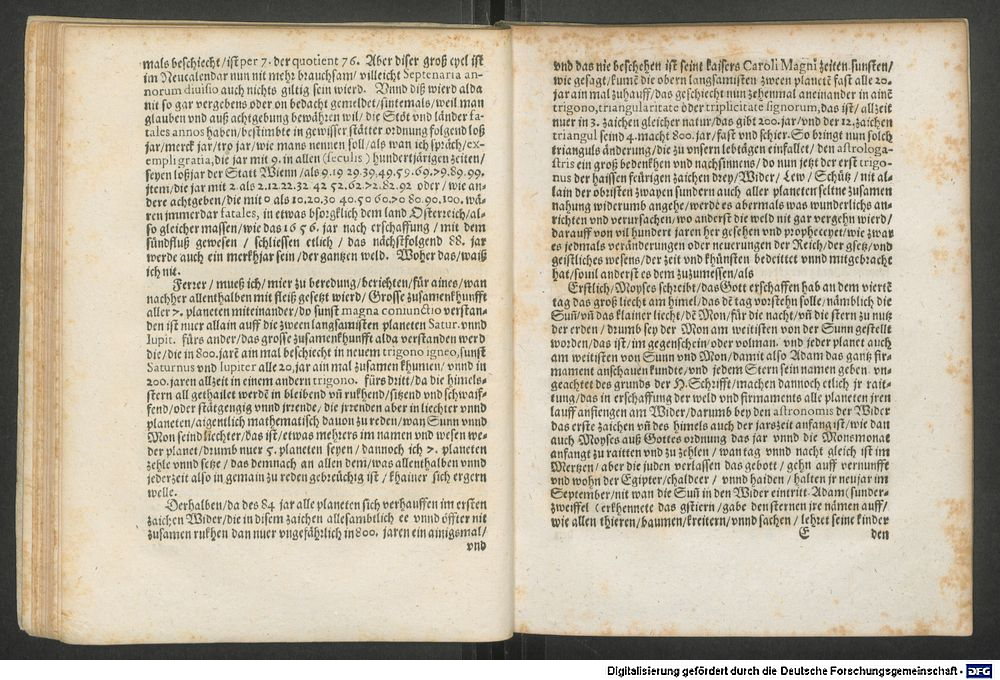 mals beschiecht/ist per 7. der quotient 76. Aber diser groß cycl ist
im Neucalendar nun nit mehr brauchsam/ villeicht Septenaria an-
norum diuisio auch nichts giltig sein wierd. Vnnd diß wierd alda
nit so gar vergebens oder on bedacht gemeldet/sintemals/weil man
glauben vnd auß achtgebung bewähren wil/die Stät vnd länder fa-
tales annos haben/bestimbte in gewisser stätter ordnung folgend loß
jar/merck jar/tro jar/wie mans nennen soll/als wan ich spräch/ex-
empli gratia,die jar mit 9. in allen (seculis) hundertjärigen zeiten/
seyen loßjar der Statt Wienn/als 9.19 29.39.49.59.69.79.89.99.
jtem/die jar mit 2 als 2.12.22.32 42 52.62.72.82.92 oder/wie an-
dere achtgeben/die mit 0 als 10.20.30 40.50 60.70 80.90.100. wä-
ren jmmerdar fatales, in etwas bsorgklich dem land Osterreich/al-
so gleicher massen/wie das 1656. jar nach erschaffung/mit dem
sündfluß gewesen/schliessen etlich/das nächstfolgend 88. jar
werde auch ein merkhjar sein/der gantzen weld. Woher das/waiß
ich nit.
Ferrer/mueß ich/mier zu beredung/berichten/für aines/wan
nachher allenthalben mit fleiß gesetzt wierd/Grosse zusamenkhunfft
aller 7. planeten miteinander/do sunst magna coniunctio verstan-
den ist nuer allain auff die zween langsamisten planeten Satur. vnnd
Iupit. fürs ander/das grosse zusamenkhunfft alda verstanden werd
die/die in 800.jarẽ ain mal beschiecht in neuem trigono igneo,sunst
Saturnus vnd Iupiter alle 20.jar ain mal zusamen khumen/vnnd in
200.jaren allzeit in einem andern trigono. fürs dritt/da die himels-
stern all gethailet werdẽ in bleibend vñ rukhend/sitzend vnd schwaif-
fend/oder stätgengig vnnd jrrende/die jrrenden aber in liechter vnnd
planeten/aigentlich mathematisch dauon zu reden/wañ Sunn vnnd
Mon seind liechter/das ist/etwas mehrers im namen vnd wesen we-
der planet/drumb nuer 5. planeten seyen/dannoch ich 7. planeten
zehle vnnd setze/das demnach an allen dem/was allenthalben vnnd
jederzeit also in gemain zu reden gebreüchig ist/khainer sich ergern
welle.
Derhalben/da des 84 jar alle planeten sich verhauffen im ersten
zaichen Wider/die in disem zaichen allesambtlich ee vnnd öffter nit
zusamen rukhen dan nuer vngefährlich in 800. jaren ein ainigsmal/
vnd
vnd das nie beschehen ist seint kaisers Caroli Magni zeiten. sunsten/
wie gesagt/kumẽ die obern langsamisten zween planetẽ fast alle 20.
jar ain mal zuhauff/das geschiecht nun zehenmal aneinander in ainẽ
trigono,triangularitate oder triplicitate signorum,das ist/allzeit
nuer in 3. zaichen gleicher natur/das gibt 200.jar/vnd der 12.zaichen
triangul seind 4.macht 800.jar/fast vnd schier. So bringt nun solch
trianguls änderung/die zu vnsern lebtägen einfallet/den astrologa-
stris ein groß bedenkhen vnd nachsinnens/do nun jetzt der erst trigo-
nus der haissen feürigen zaichen drey/Wider/Lew/Schütz/nit al-
lain der obristen zwayen sundern auch aller planeten seltne zusamen
nahung widerumb angehe/werdẽ es abermals was wunderlichs an-
richten vnd verursachen/wo anderst die weld nit gar vergehn wierd/
darauff von vil hundert jaren her gesehen vnd propheceyet/wie zwar
es jedmals veränderungen oder neuerungen der Reich/der gsetz/vnd
geistliches wesens/der zeit vnd khünsten bedeittet vnnd mitgebracht
hat/souil anderst es dem zuzumessen/als
Erstlich/Moyses schreibt/das Gott erschaffen hab an dem viertẽ
tag das groß liecht am himel/das dẽ tag vorstehn solle/nämblich die
Suñ/vñ das klainer liecht/dẽ Mon/für die nacht/vñ die stern zu nutz
der erden/drumb sey der Mon am weitisten von der Sunn gestellt
worden/das ist/im gegenschein/oder volman. vnd jeder planet auch
am weitisten von Sunn vnd Mon/damit also Adam das gantz fir-
mament anschauen kundte/vnd jedem Stern sein namen geben. vn-
geachtet des grunds der H. Schrifft/machen dannoch etlich jr rait-
tung/das in erschaffung der weld vnd firmaments alle planeten jren
lauff anfiengen am Wider/darumb bey den astronomis der Wider
das erste zaichen vñ des himels auch der jarszeit anfang ist/wie dan
auch Moyses auß Gottes ordnung das jar vnnd die Monsmonat
anfangt zu raitten vnd zu zehlen/wan tag vnnd nacht gleich ist im
Mertzen/aber die juden verlassen das gebott/gehn auff vernunfft
vnd wohn der Egipter/chaldeer/vnnd haiden/halten jr neujar im
September/nit wan die Suñ in den Wider eintritt. Adam (sunder-
zweiffel (erkhennete das gstiern/gabe den sternen jre nämen auff/
wie allen thieren/baumen/kreitern/vnnd sachen/lehret seine kinder
E den
Digitalisierung gefördert durch die Deutsche Forschungsgemeinschaft - DFG